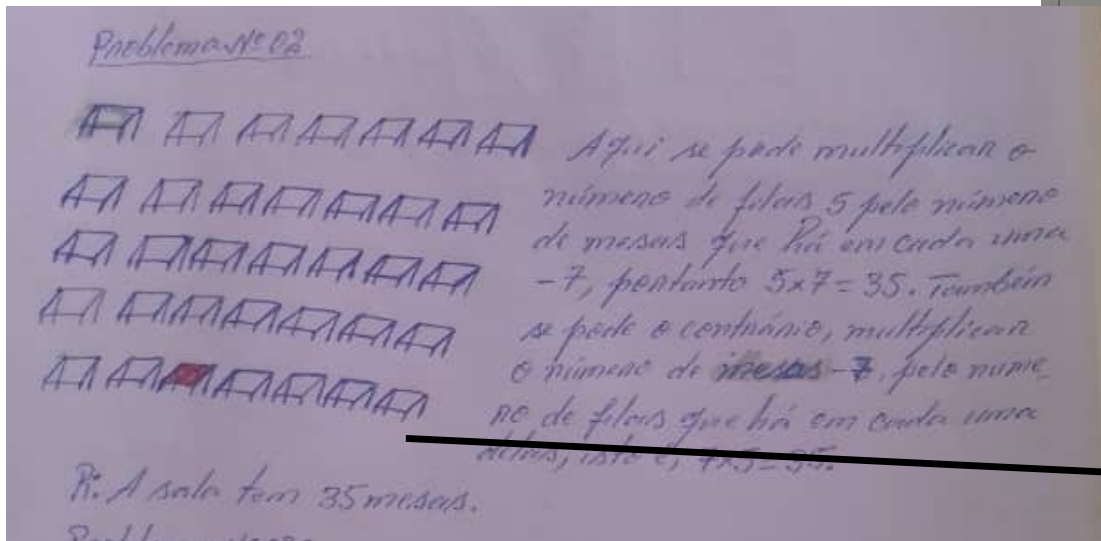 Problema Nº 02
Aqui se pode multiplicar o
número de filas 5 pelo número
de mesas que há em cada uma
-7, portanto 5x7=35. Também
se pode o contrário, multiplicar
o número de mesas -7, pelo núme
ro de filas que há em cada uma
delas, isto é, 7x5=35.
R: A sala tem 35 mesas.